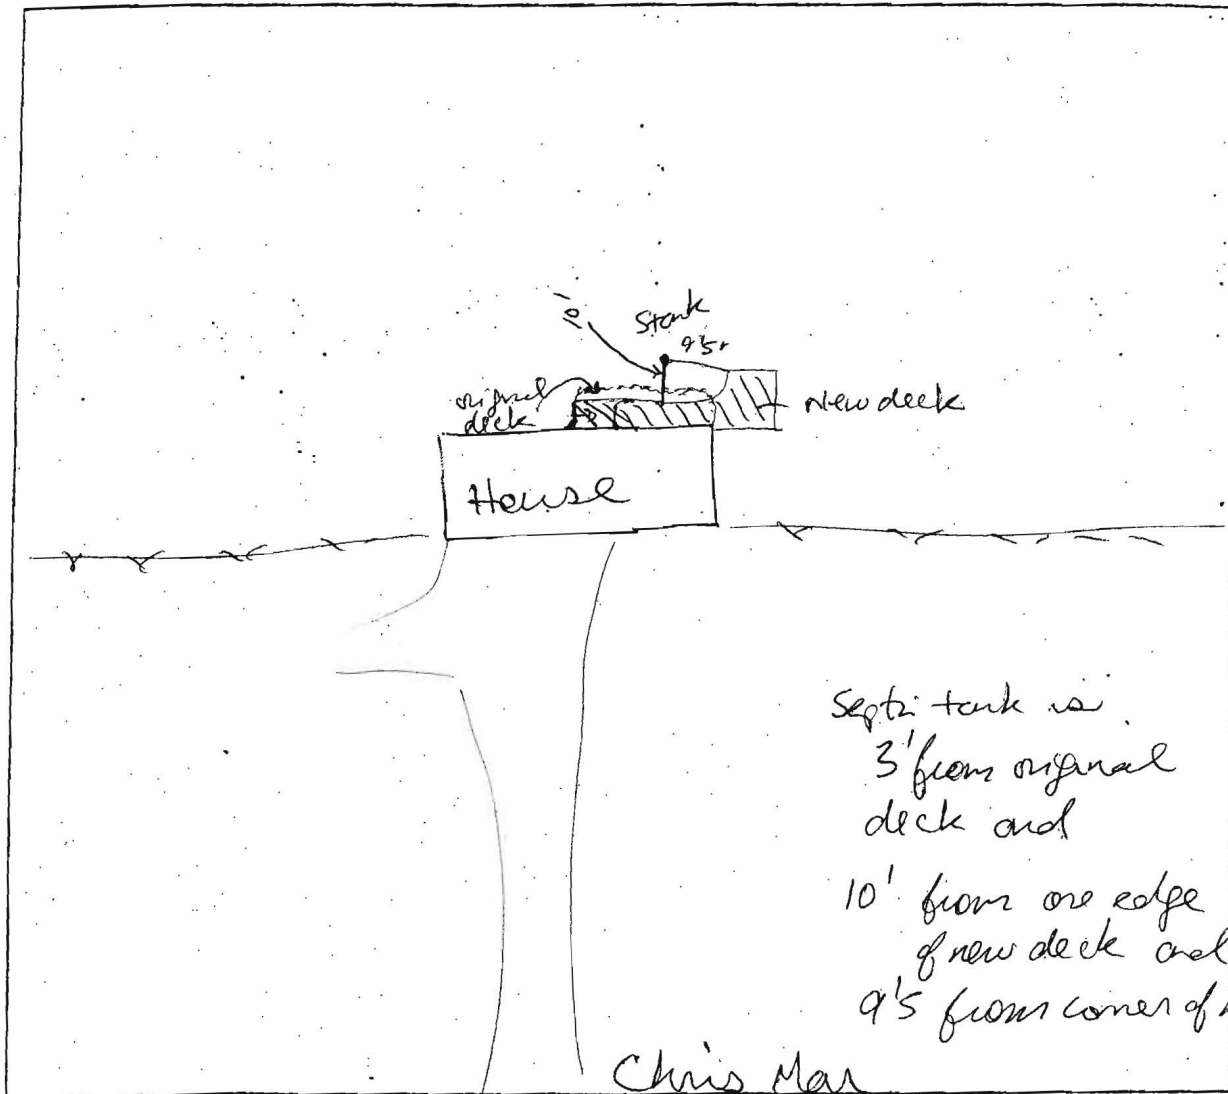 10'
Stank
9'5"
original
deck
New deck
House
Septi tank is
3' from original
deck and
10' from one edge
of new deck and
9'5 from corner of
Chris Mar